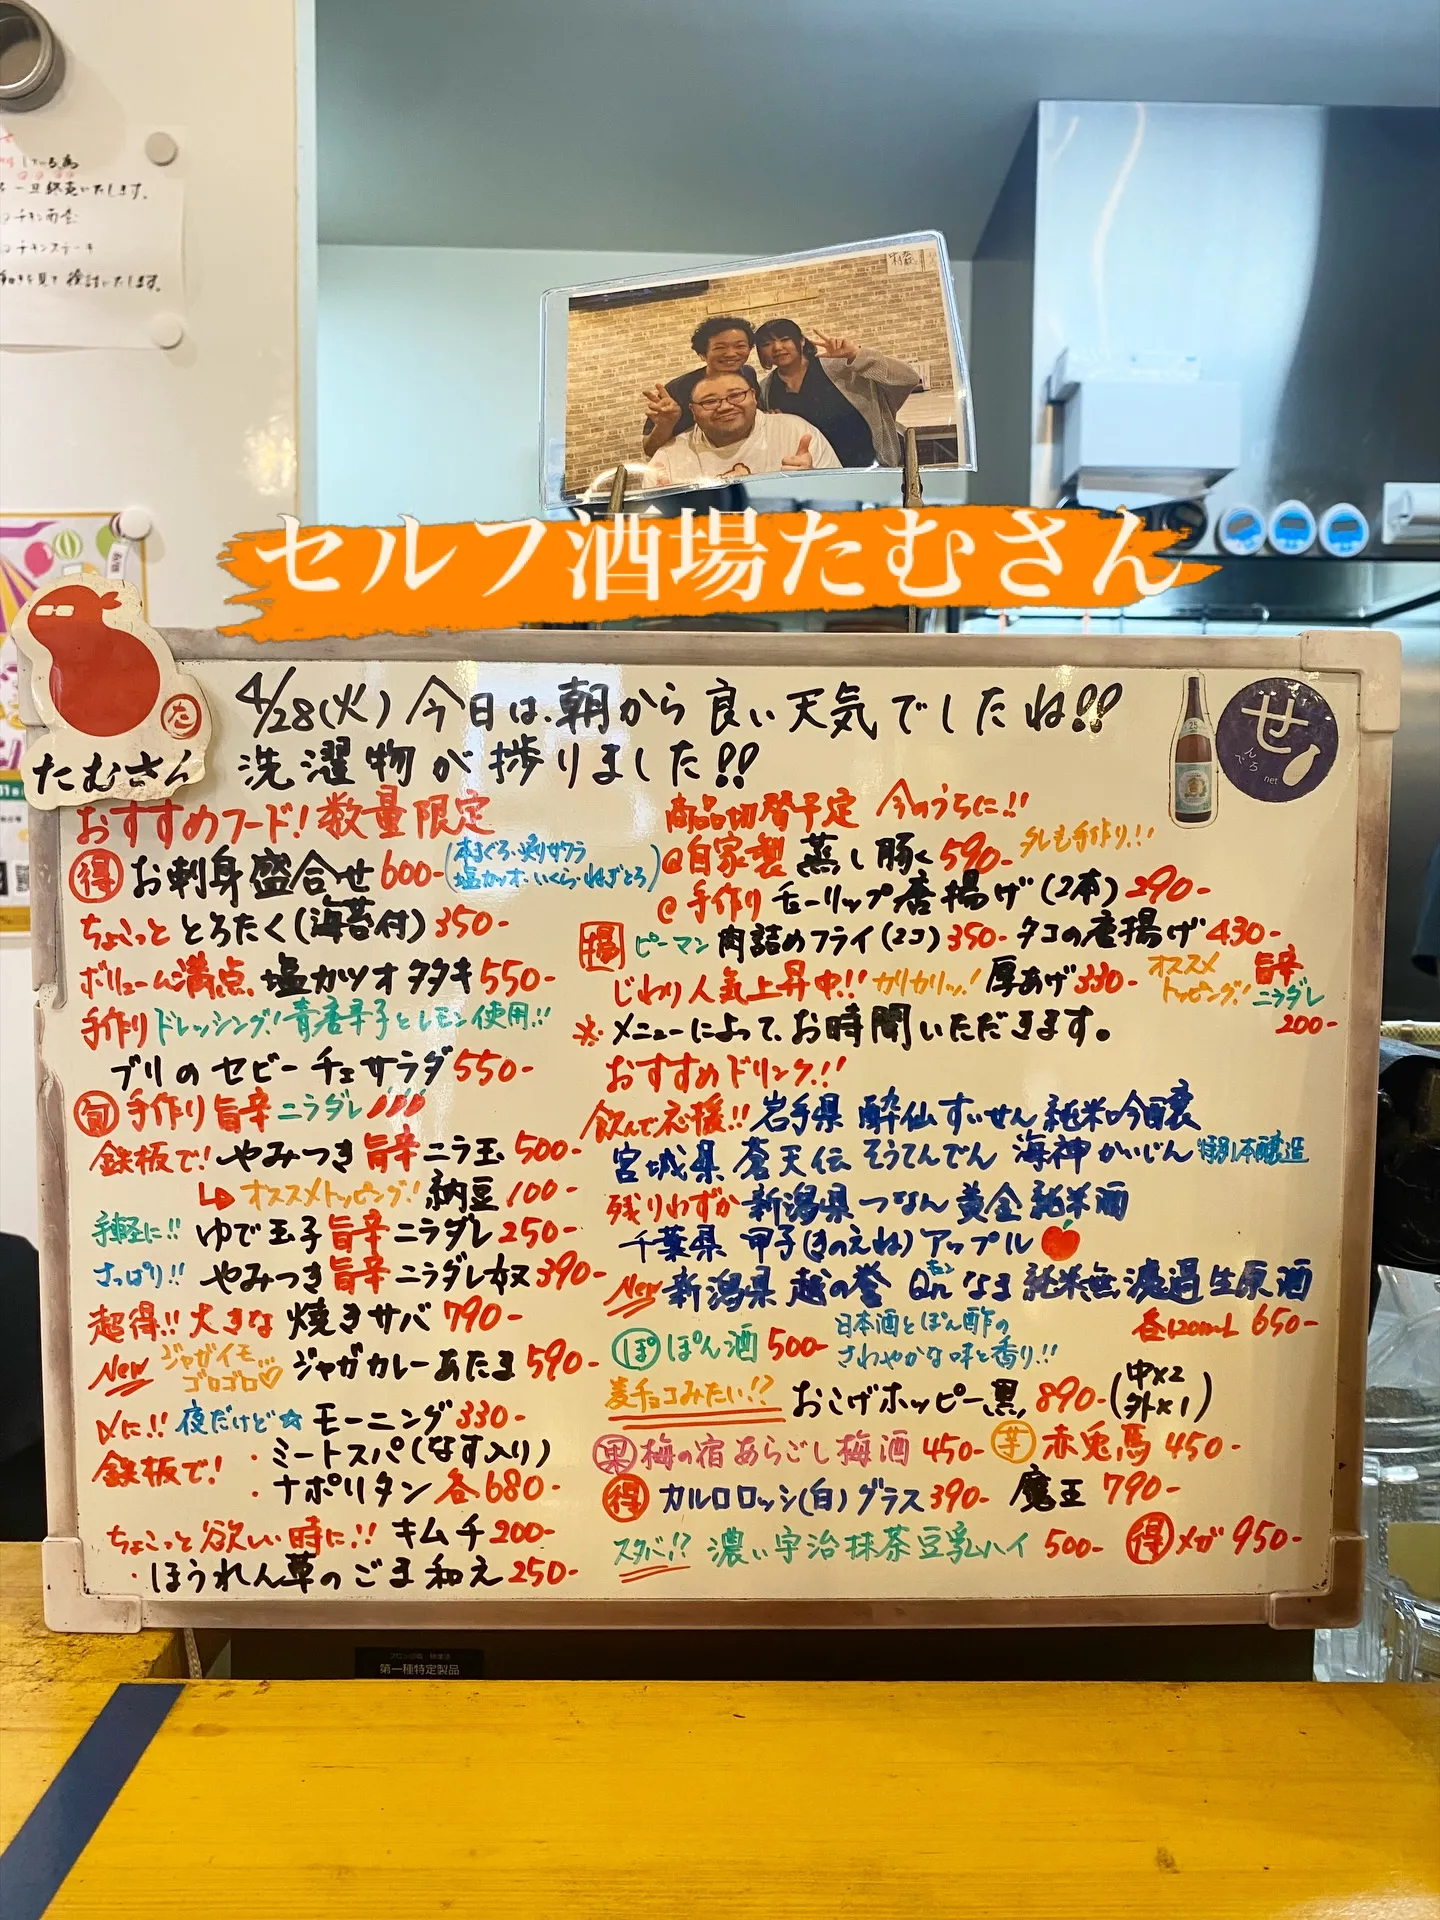 一旦終売いたします。
チキンステーキ
を見て検討いたします。
セルフ酒場たむさん
た
たむさん
4/28(火) 今日は、朝から良い天気でしたね!!
洗濯物が捗りました!!
せ
んべろ
net
おすすめフード! 数量限定
得 お刺身盛合せ 600-(本まぐろ・炙りサワラ
塩カツオ・いくら・ねぎとろ)
ちょこっと とろたく(海苔付) 350-
ボリューム満点 塩カツオタタキ 550-
手作りドレッシング! 青唐辛子とレモン使用!!
ブリのセビーチェサラダ 550-
旬 手作り旨辛ニラダレ
鉄板で! やみつき旨辛ニラ玉 500-
オススメトッピング! 納豆 100-
手軽に!! ゆで玉子旨辛ニラダレ 250-
さっぱり!! やみつき旨辛ニラダレ奴 390-
超得!! 大きな焼きサバ 790-
New ジャガイモ
ゴロゴロ♡ ジャガカレーあたま 590-
〆に!! 夜だけど☆ モーニング 330-
鉄板で! ・ミートスパ(なす入り)
・ナポリタン 各680-
ちょこっと欲しい時に!! キムチ 200-
・ほうれん草のごま和え 250-
商品切替予定 今のうちに!!
@自家製 蒸し豚 590- タレも手作り!!
@手作り チューリップ唐揚げ(2本) 290-
揚 ピーマン肉詰めフライ(2コ) 350- タコの唐揚げ 430-
じわり人気上昇中!! カリカリッ! 厚あげ 330- オススメ
トッピング! 旨辛
ニラダレ
200-
※メニューによって、お時間いただきます。
おすすめドリンク!!
飲んで応援!! 岩手県 酔仙 すいせん 純米吟醸
宮城県 蒼天伝 そうてんでん 海神 かいじん 特別本醸造
残りわずか 新潟県 つなん 黄金 純米酒
千葉県 甲子(きのえね)アップル
New 新潟県 越の誉 Qn なま 純米無濾過生原酒
各120mL 650-
ぽ ぽん酒 500- 日本酒とぽん酢の
さわやかな味と香り!!
麦チョコみたい!? おこげホッピー黒 890-(中×2
外×1)
果 梅の宿 あらごし梅酒 450- 芋 赤兎馬 450-
得 カルロロッシ(白)グラス 390- 魔王 790-
スタバ!? 濃い宇治抹茶豆乳ハイ 500- 得 メガ 950-
第一種特定製品